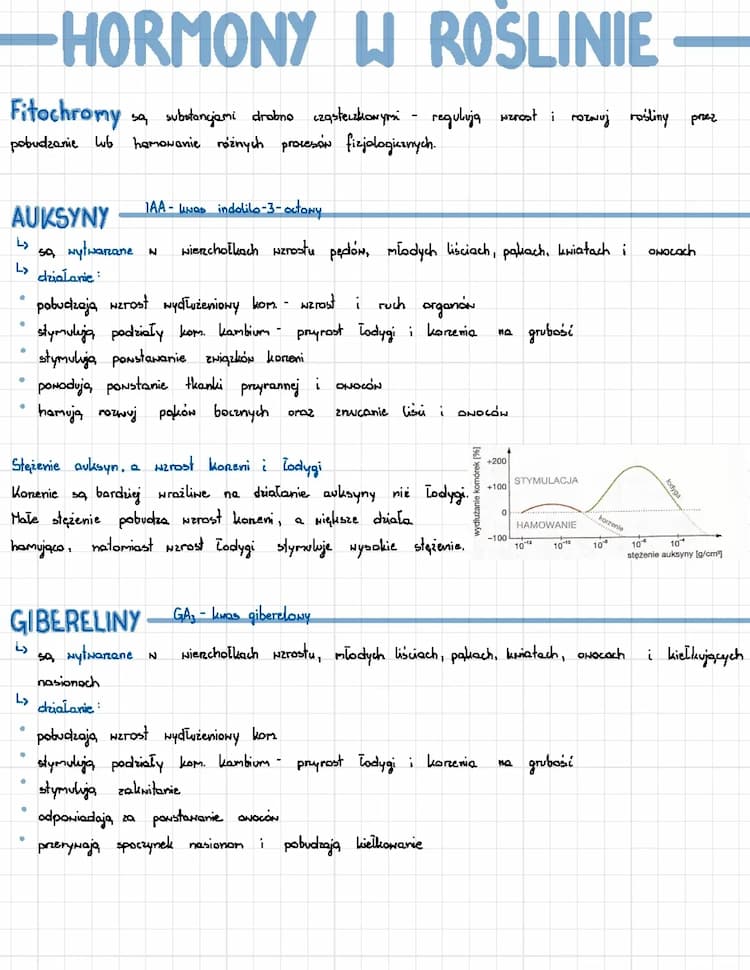 HORMONY W ROŚLINIE
Fitochromy są substancjami drobno cząsteczkowymi - regulują wzrost i rozwój rośliny przez
pobudzanie lub hamowanie różnych procesów fizjologicznych.
AUKSYNY IAA - kwas indolilo-3-octowy
↳ są wytwarzane w wierzchołkach wzrostu pędów, młodych liściach, pąkach, kwiatach i owocach
↳ działanie:
• pobudzają wzrost wydłużeniowy kom. - wzrost i ruch organów
• stymulują podziały kom. kambium - przyrost łodygi i korzenia na grubość
• stymulują powstawanie związków korzeni
• powodują powstanie tkanki przyrannej i owoców
• hamują rozwój pąków bocznych oraz zrzucanie liści i owoców
Stężenie auksyn, a wzrost korzeni i łodygi
Korzenie są bardziej wrażliwe na działanie auksyny niż łodygi.
Małe stężenie pobudza wzrost korzeni, a większe działa
hamująco, natomiast wzrost łodygi stymuluje wysokie stężenie.
wydłużanie komórek [%]
+200
+100
0
-100
STYMULACJA
HAMOWANIE
korzenie
łodyga
10⁻¹² 10⁻¹⁰ 10⁻⁸ 10⁻⁶ 10⁻⁴
stężenie auksyny [g/cm³]
GIBERELINY GA₃ - kwas giberelowy
↳ są wytwarzane w wierzchołkach wzrostu, młodych liściach, pąkach, kwiatach, owocach i kiełkujących
nasionach
↳ działanie:
• pobudzają wzrost wydłużeniowy kom
• stymulują podziały kom. kambium - przyrost łodygi i korzenia na grubość
• stymulują zakwitanie
• odpowiadają za powstawanie owoców
• przerywają spoczynek nasionom i pobudzają kiełkowanie